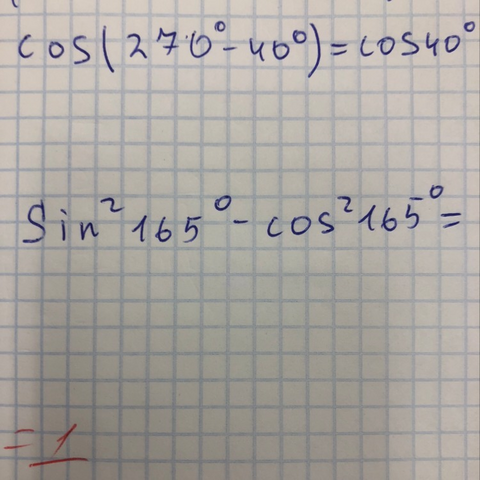 cos(270°-40°)=cos40°
Sin²165°-cos²165°=
=1